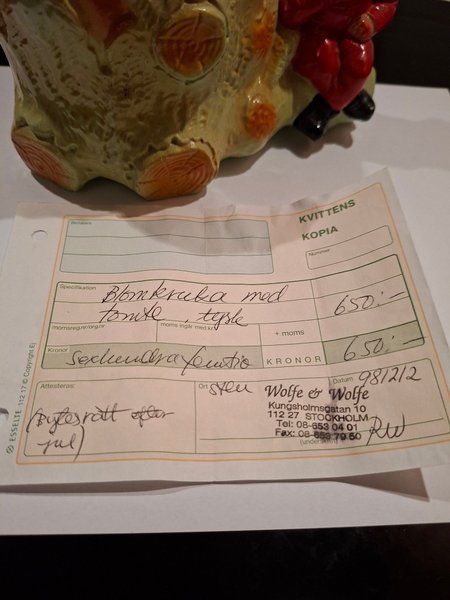 KVITTENS
KOPIA
Betalare
Nummer
Specifikation
Blomkruka med 650:-
tomte, tysk
momsreg.nr/org.nr moms ingår med kr + moms
Kronor sexhundrafemtio KRONOR 650:-
Attesteras:
(Bytesrätt efter
jul)
Ort Sthlm Datum 981212
Wolfe & Wolfe
Kungsholmsgatan 10
112 27 STOCKHOLM
Tel: 08-653 04 01
Fax: 08-653 79 50
RW
ESSELTE 112 17 © Copyright EJ